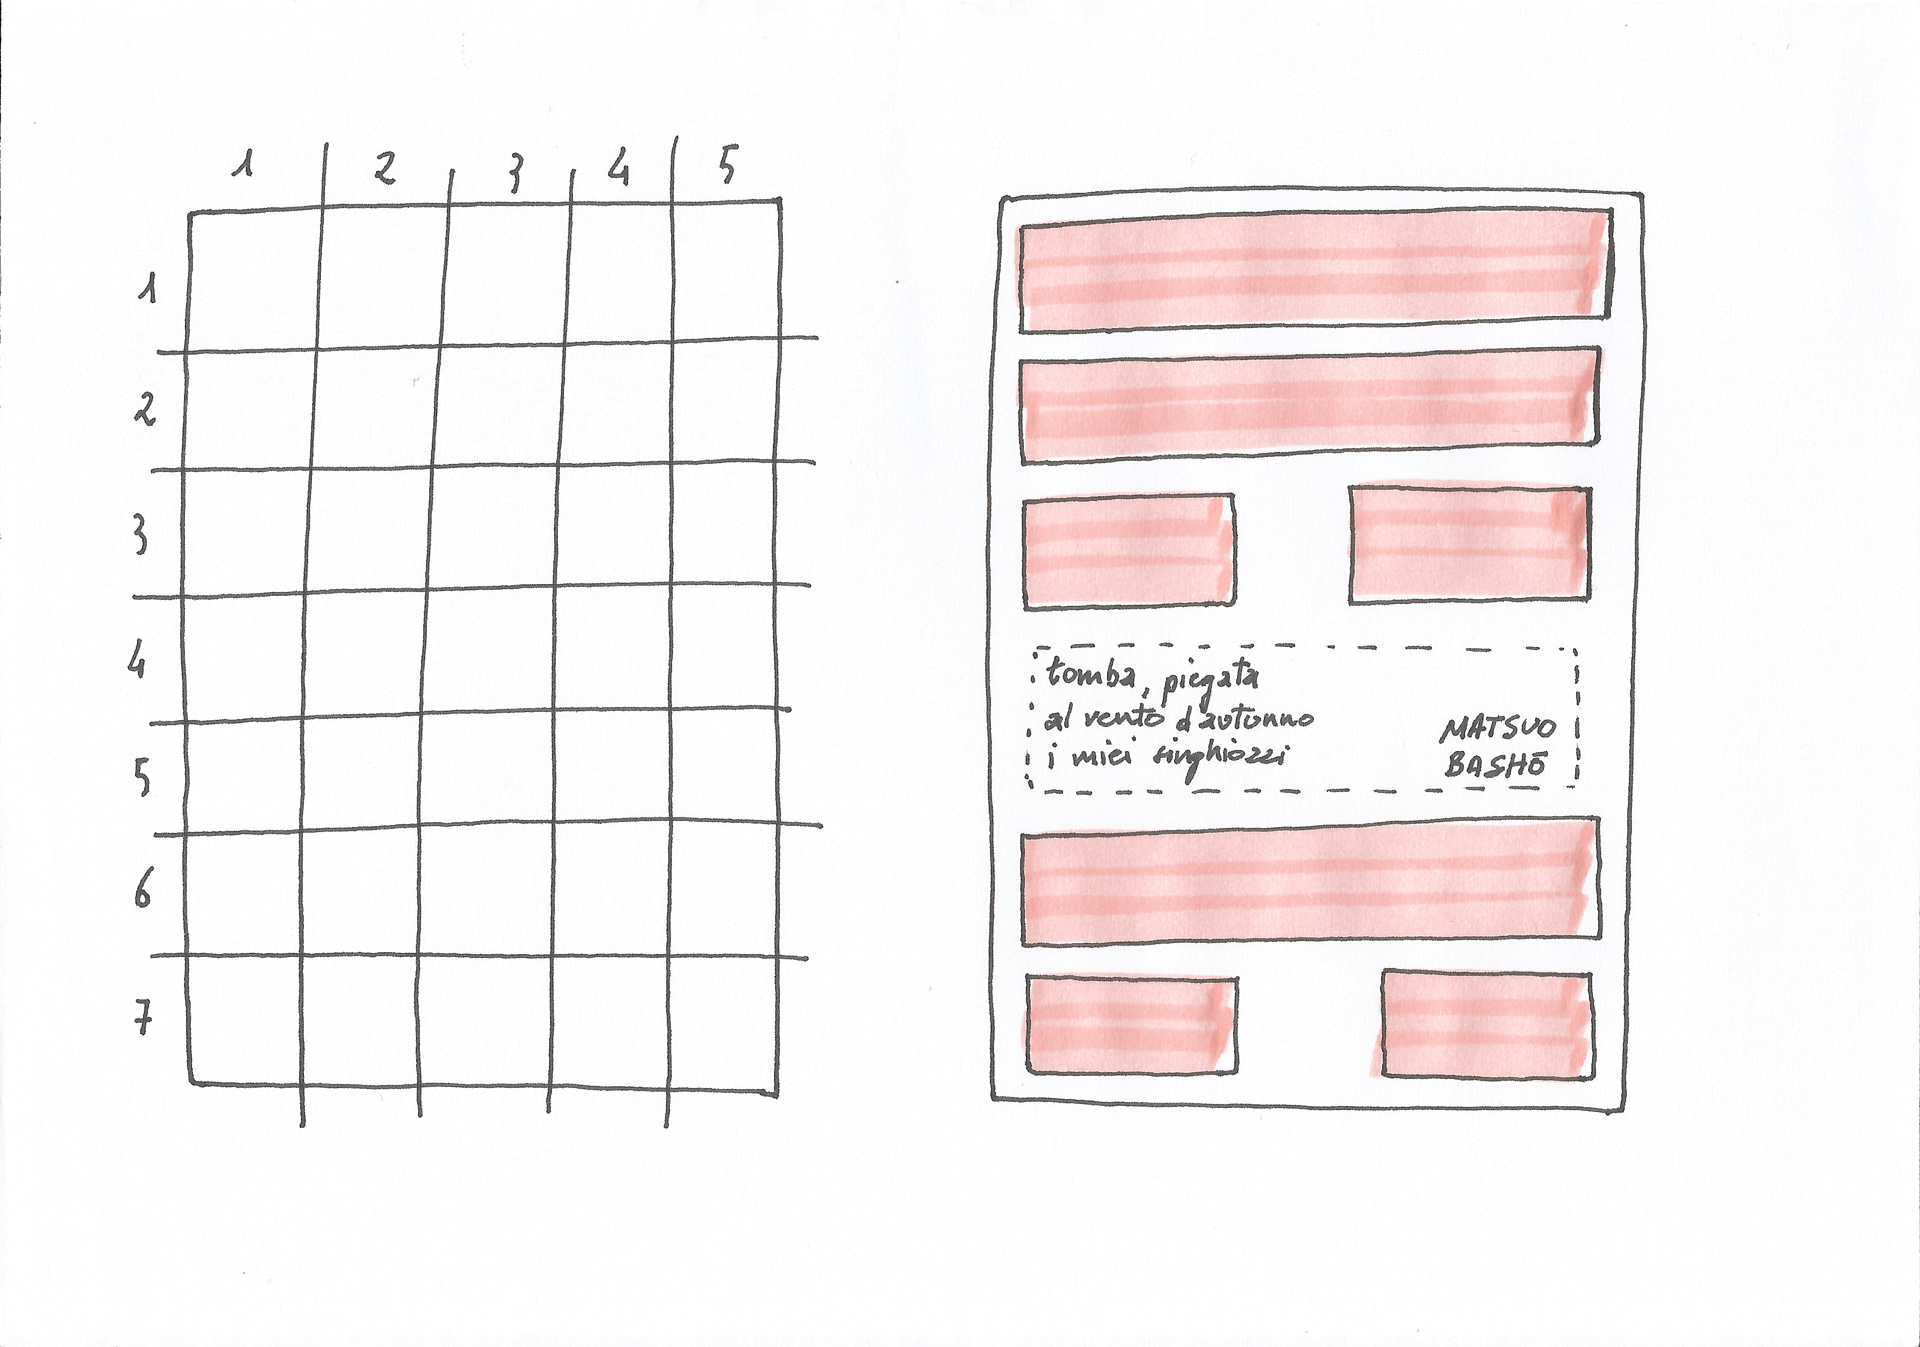 1 2 3 4 5
1
2
3
4
5
6
7
tomba, piegata
al vento d'autunno
i miei singhiozzi
MATSUO
BASHŌ